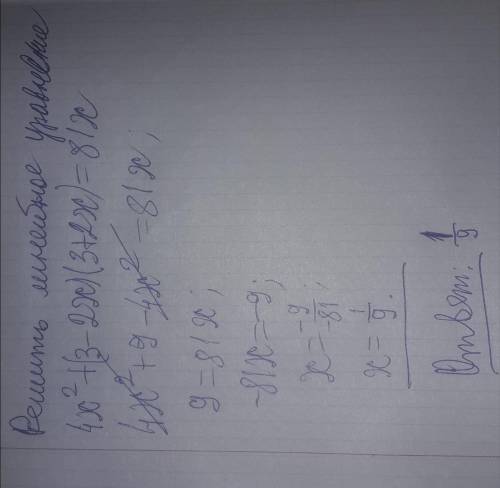 Решить линейное уравнение
4x²+(3-2x)(3+2x)=81x
4x²+9-4x²=81x;
9=81x;
-81x=-9;
x=-9/-81;
x=1/9.
Ответ: 1/9